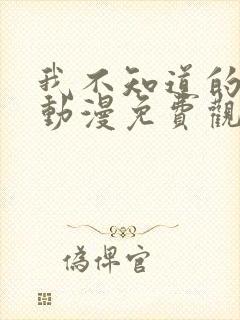 我不知道的
動漫免費觀
偽俾官